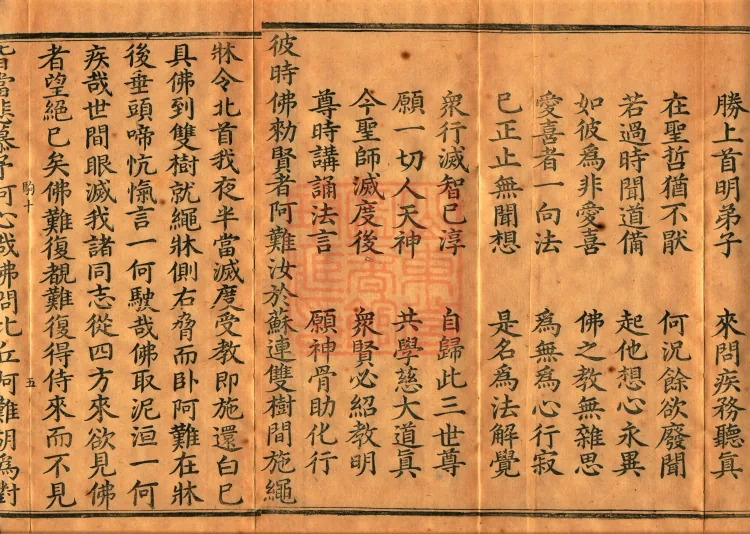 勝上首明弟子　來問疾務聽真
在聖哲猶不厭　何況餘欲廢聞
若過時聞道備　起他想心永異
如彼爲非愛喜　佛之教無雜思
愛喜者一向法　爲無爲心行寂
已正止無聞想　是名爲法解覺
衆行滅智已淳　自歸此三世尊
願一切人天神　共學慈大道真
今聖師滅度後　衆賢必紹教明
尊時講誦法言　願神骨助化行
彼時佛勑賢者阿難汝於蘇連雙樹間施繩
牀令北首我夜半當滅度受教即施還白已
具佛到雙樹就繩牀側右脅而臥阿難在牀
後垂頭啼忼愾言一何駛哉佛取泥洹一何
疾哉世間眼滅我諸同志從四方來欲見佛
者望絕已矣佛難復覩難復得侍來而不見
駒十　五
皆當悲慕子何心哉佛問比丘阿難胡爲對